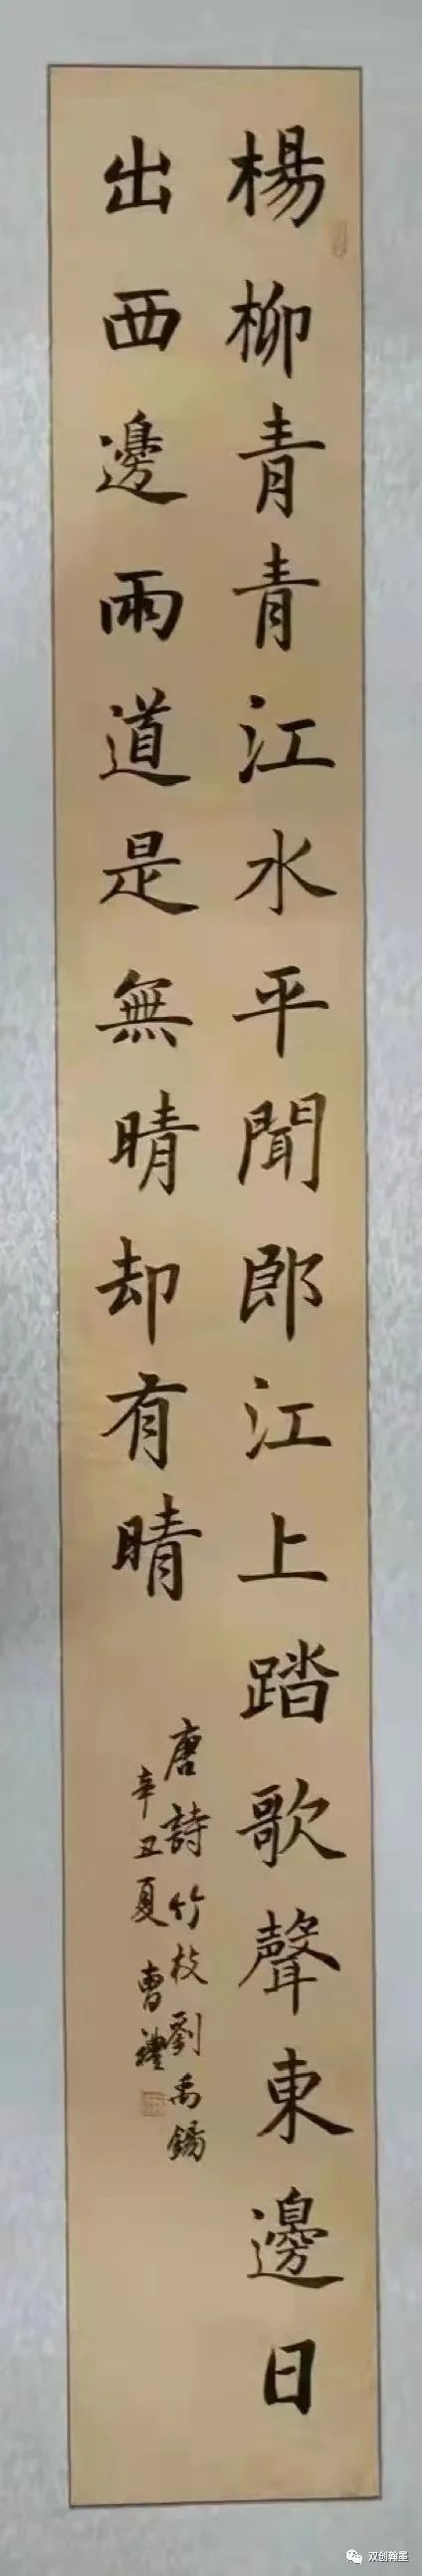 楊柳青青江水平聞郎江上踏歌聲東邊日
出西邊雨道是無晴却有晴
唐詩竹枝劉禹錫
辛丑夏曹禮
双创翰墨